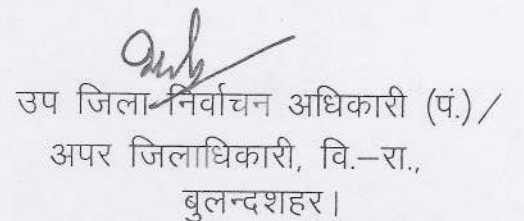 उप जिला निर्वाचन अधिकारी (पं.)/
अपर जिलाधिकारी, वि.–रा.,
बुलन्दशहर।